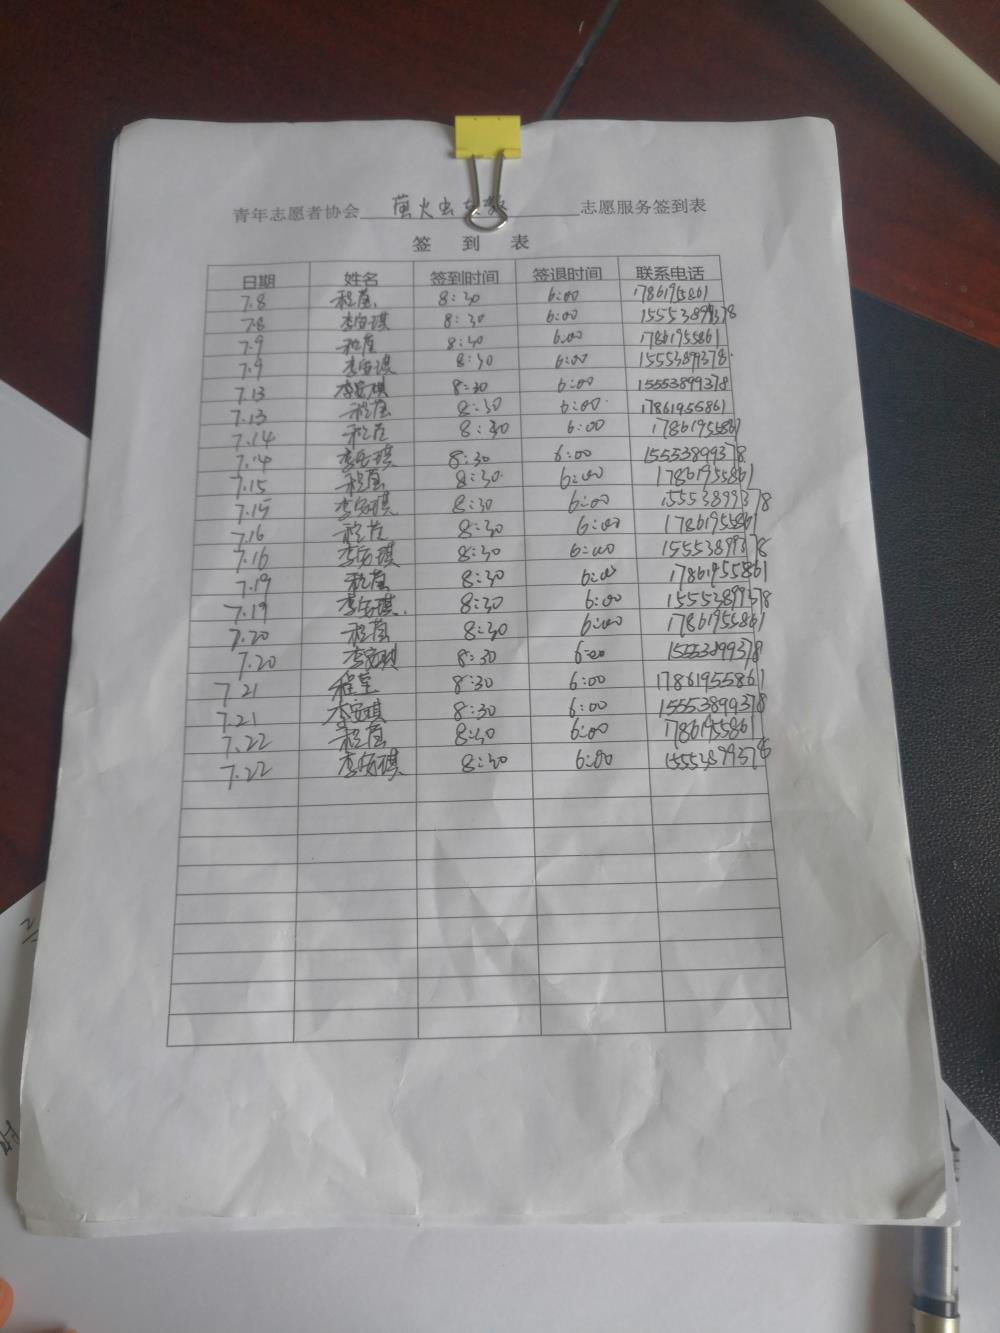 青年志愿者协会 萤火虫支教 志愿服务签到表
签 到 表
日期 姓名 签到时间 签退时间 联系电话
7.8 程茵 8:30 6:00 17861955861
7.8 李安琪 8:30 6:00 15553899378
7.9 程茵 8:30 6:00 17861955861
7.9 李安琪 8:30 6:00 15553899378
7.13 李安琪 8:30 6:00 15553899378
7.13 程茵 8:30 6:00 17861955861
7.14 程茵 8:30 6:00 17861955861
7.14 李安琪 8:30 6:00 15553899378
7.15 程茵 8:30 6:00 17861955861
7.15 李安琪 8:30 6:00 15553899378
7.16 程茵 8:30 6:00 17861955861
7.16 李安琪 8:30 6:00 15553899378
7.19 程茵 8:30 6:00 17861955861
7.19 李安琪 8:30 6:00 15553899378
7.20 程茵 8:30 6:00 17861955861
7.20 李安琪 8:30 6:00 15553899378
7.21 程茵 8:30 6:00 17861955861
7.21 李安琪 8:30 6:00 15553899378
7.22 程茵 8:30 6:00 17861955861
7.22 李安琪 8:30 6:00 15553899378